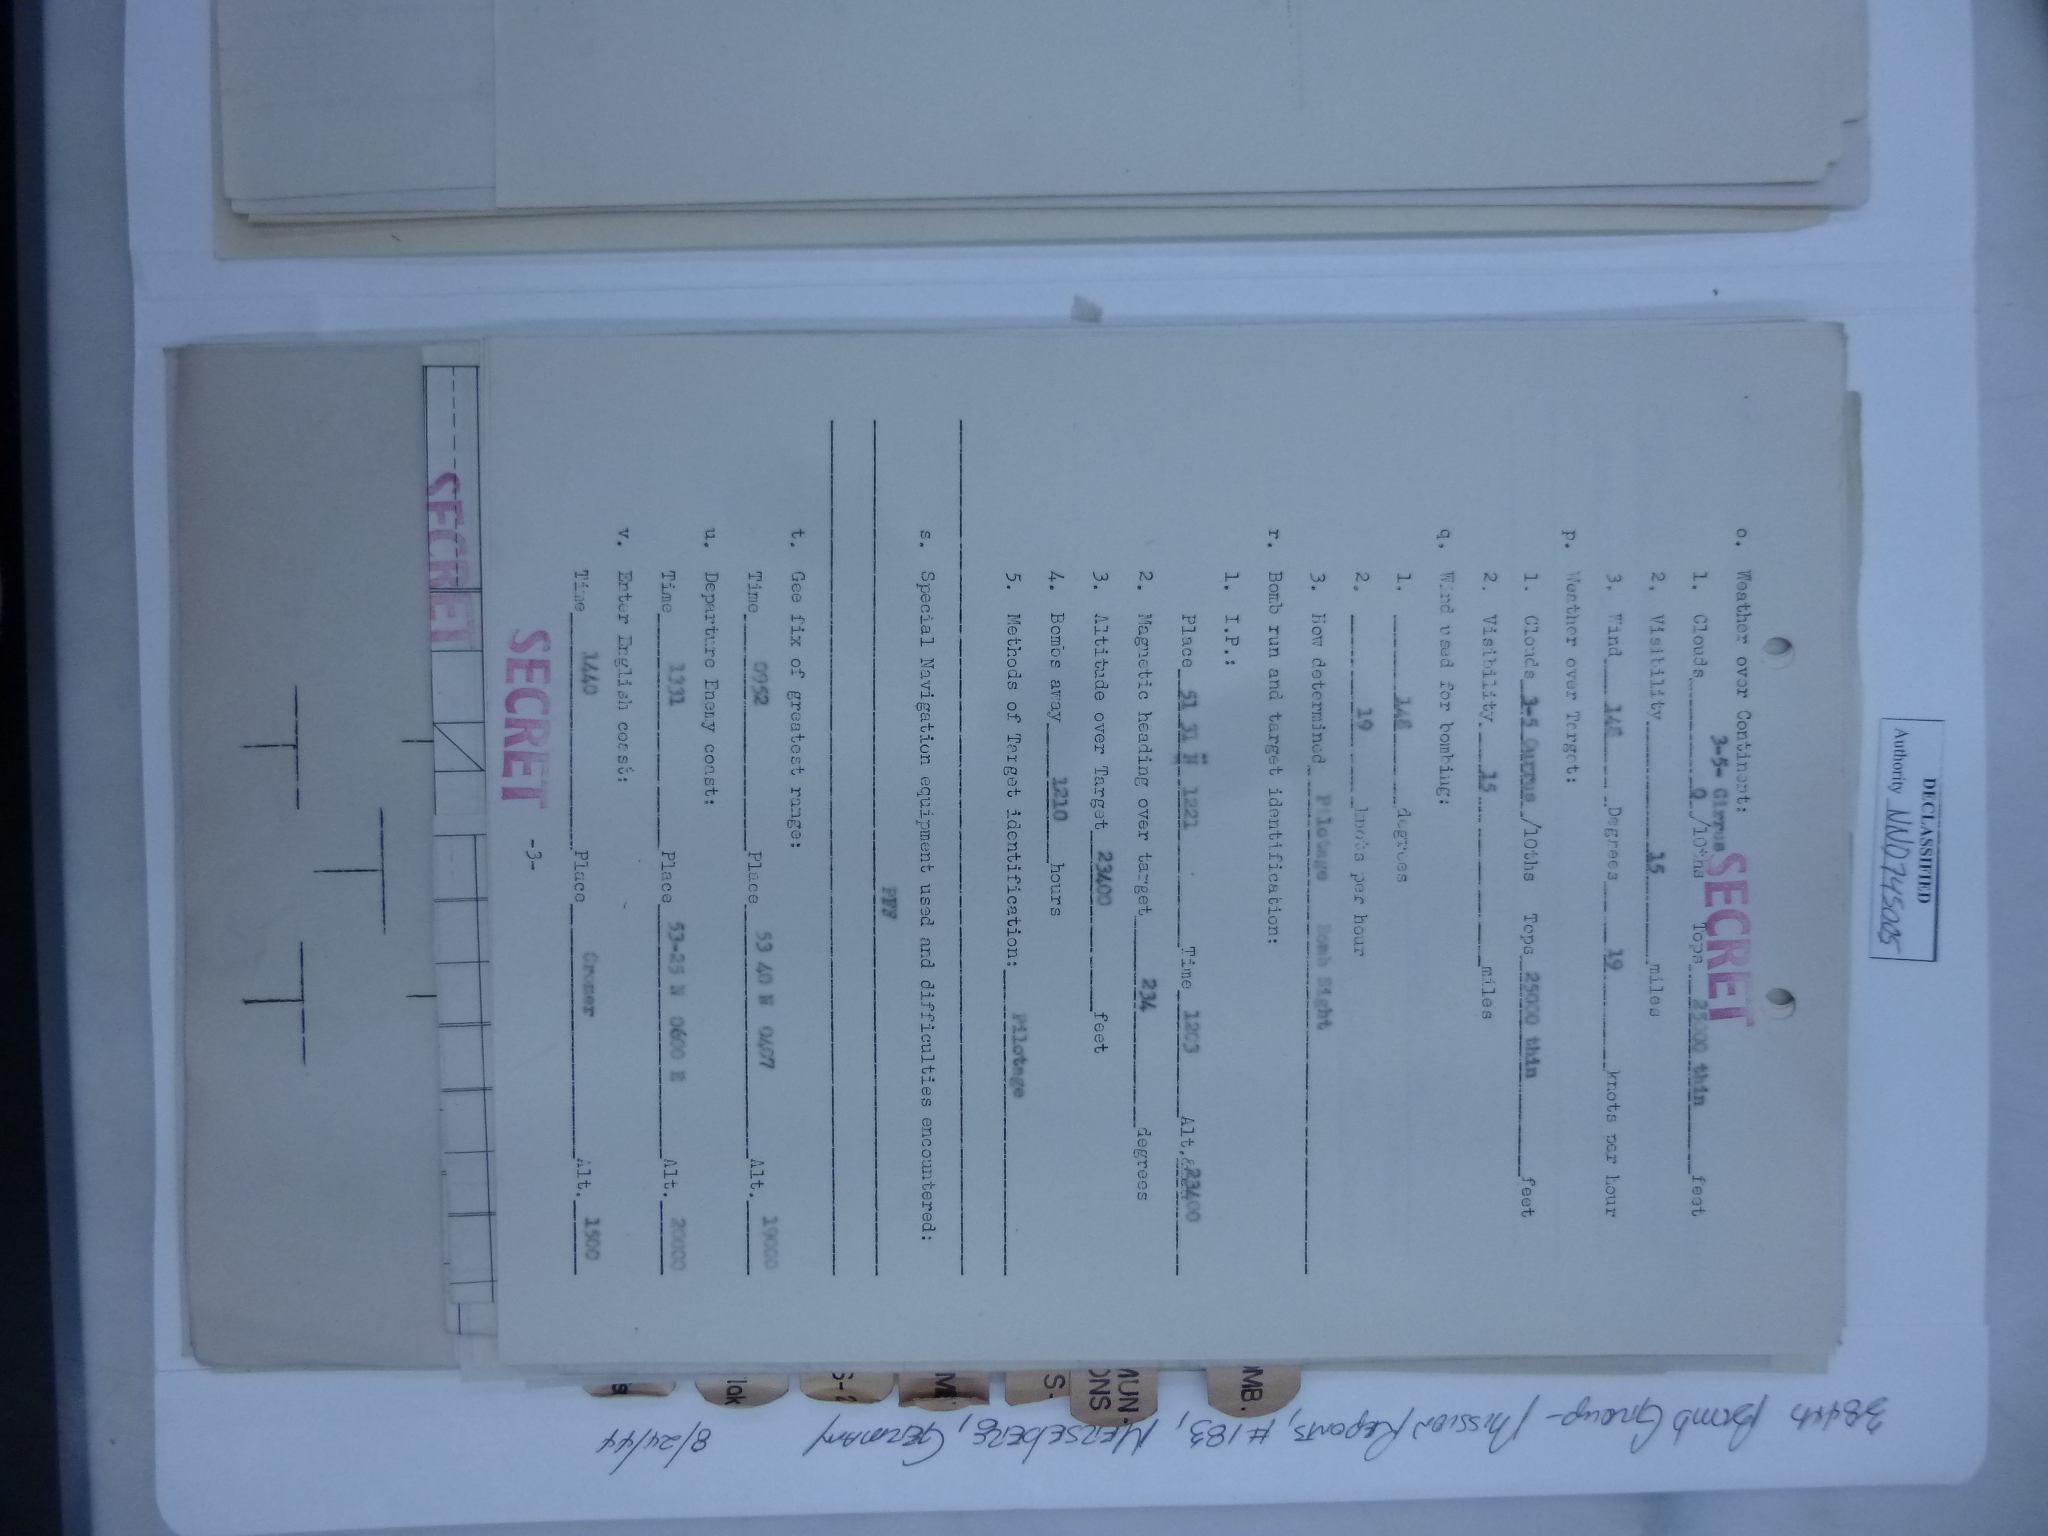 DECLASSIFIED
Authority NND745005
SECRET
o. Weather over Continent:
3-5- Cirrus
1. Clouds 0 /10ths Tops 25000 thin feet
2. Visibility 15 miles
3. Wind 148 Degrees 19 knots per hour
p. Weather over Target:
1. Clouds 3-5 Cirrus /10ths Tops 25000 thin feet
2. Visibility 15 miles
q. Wind used for bombing:
1. 148 degrees
2. 19 knots per hour
3. How determined Pilotage Bomb Sight
r. Bomb run and target identification:
1. I.P.:
Place 51 31 N 1221 Time 1203 Alt. 23400
2. Magnetic heading over target 234 degrees
3. Altitude over Target 23400 feet
4. Bombs away 1210 hours
5. Methods of Target identification: Pilotage
s. Special Navigation equipment used and difficulties encountered:
PFF
t. Gee fix of greatest range:
Time 0952 Place 53 40 N 0407 Alt. 19000
u. Departure Enemy coast:
Time 1331 Place 53-25 N 0600 E Alt. 20000
v. Enter English coast:
Time 1440 Place Cromer Alt. 1500
SECRET -3-
SECRET
OMB.
MUN-
ONS
S-
S-2
lak
384th Bomb Group - Mission Reports, #183, MERSEBERG, GERMANY
8/24/44